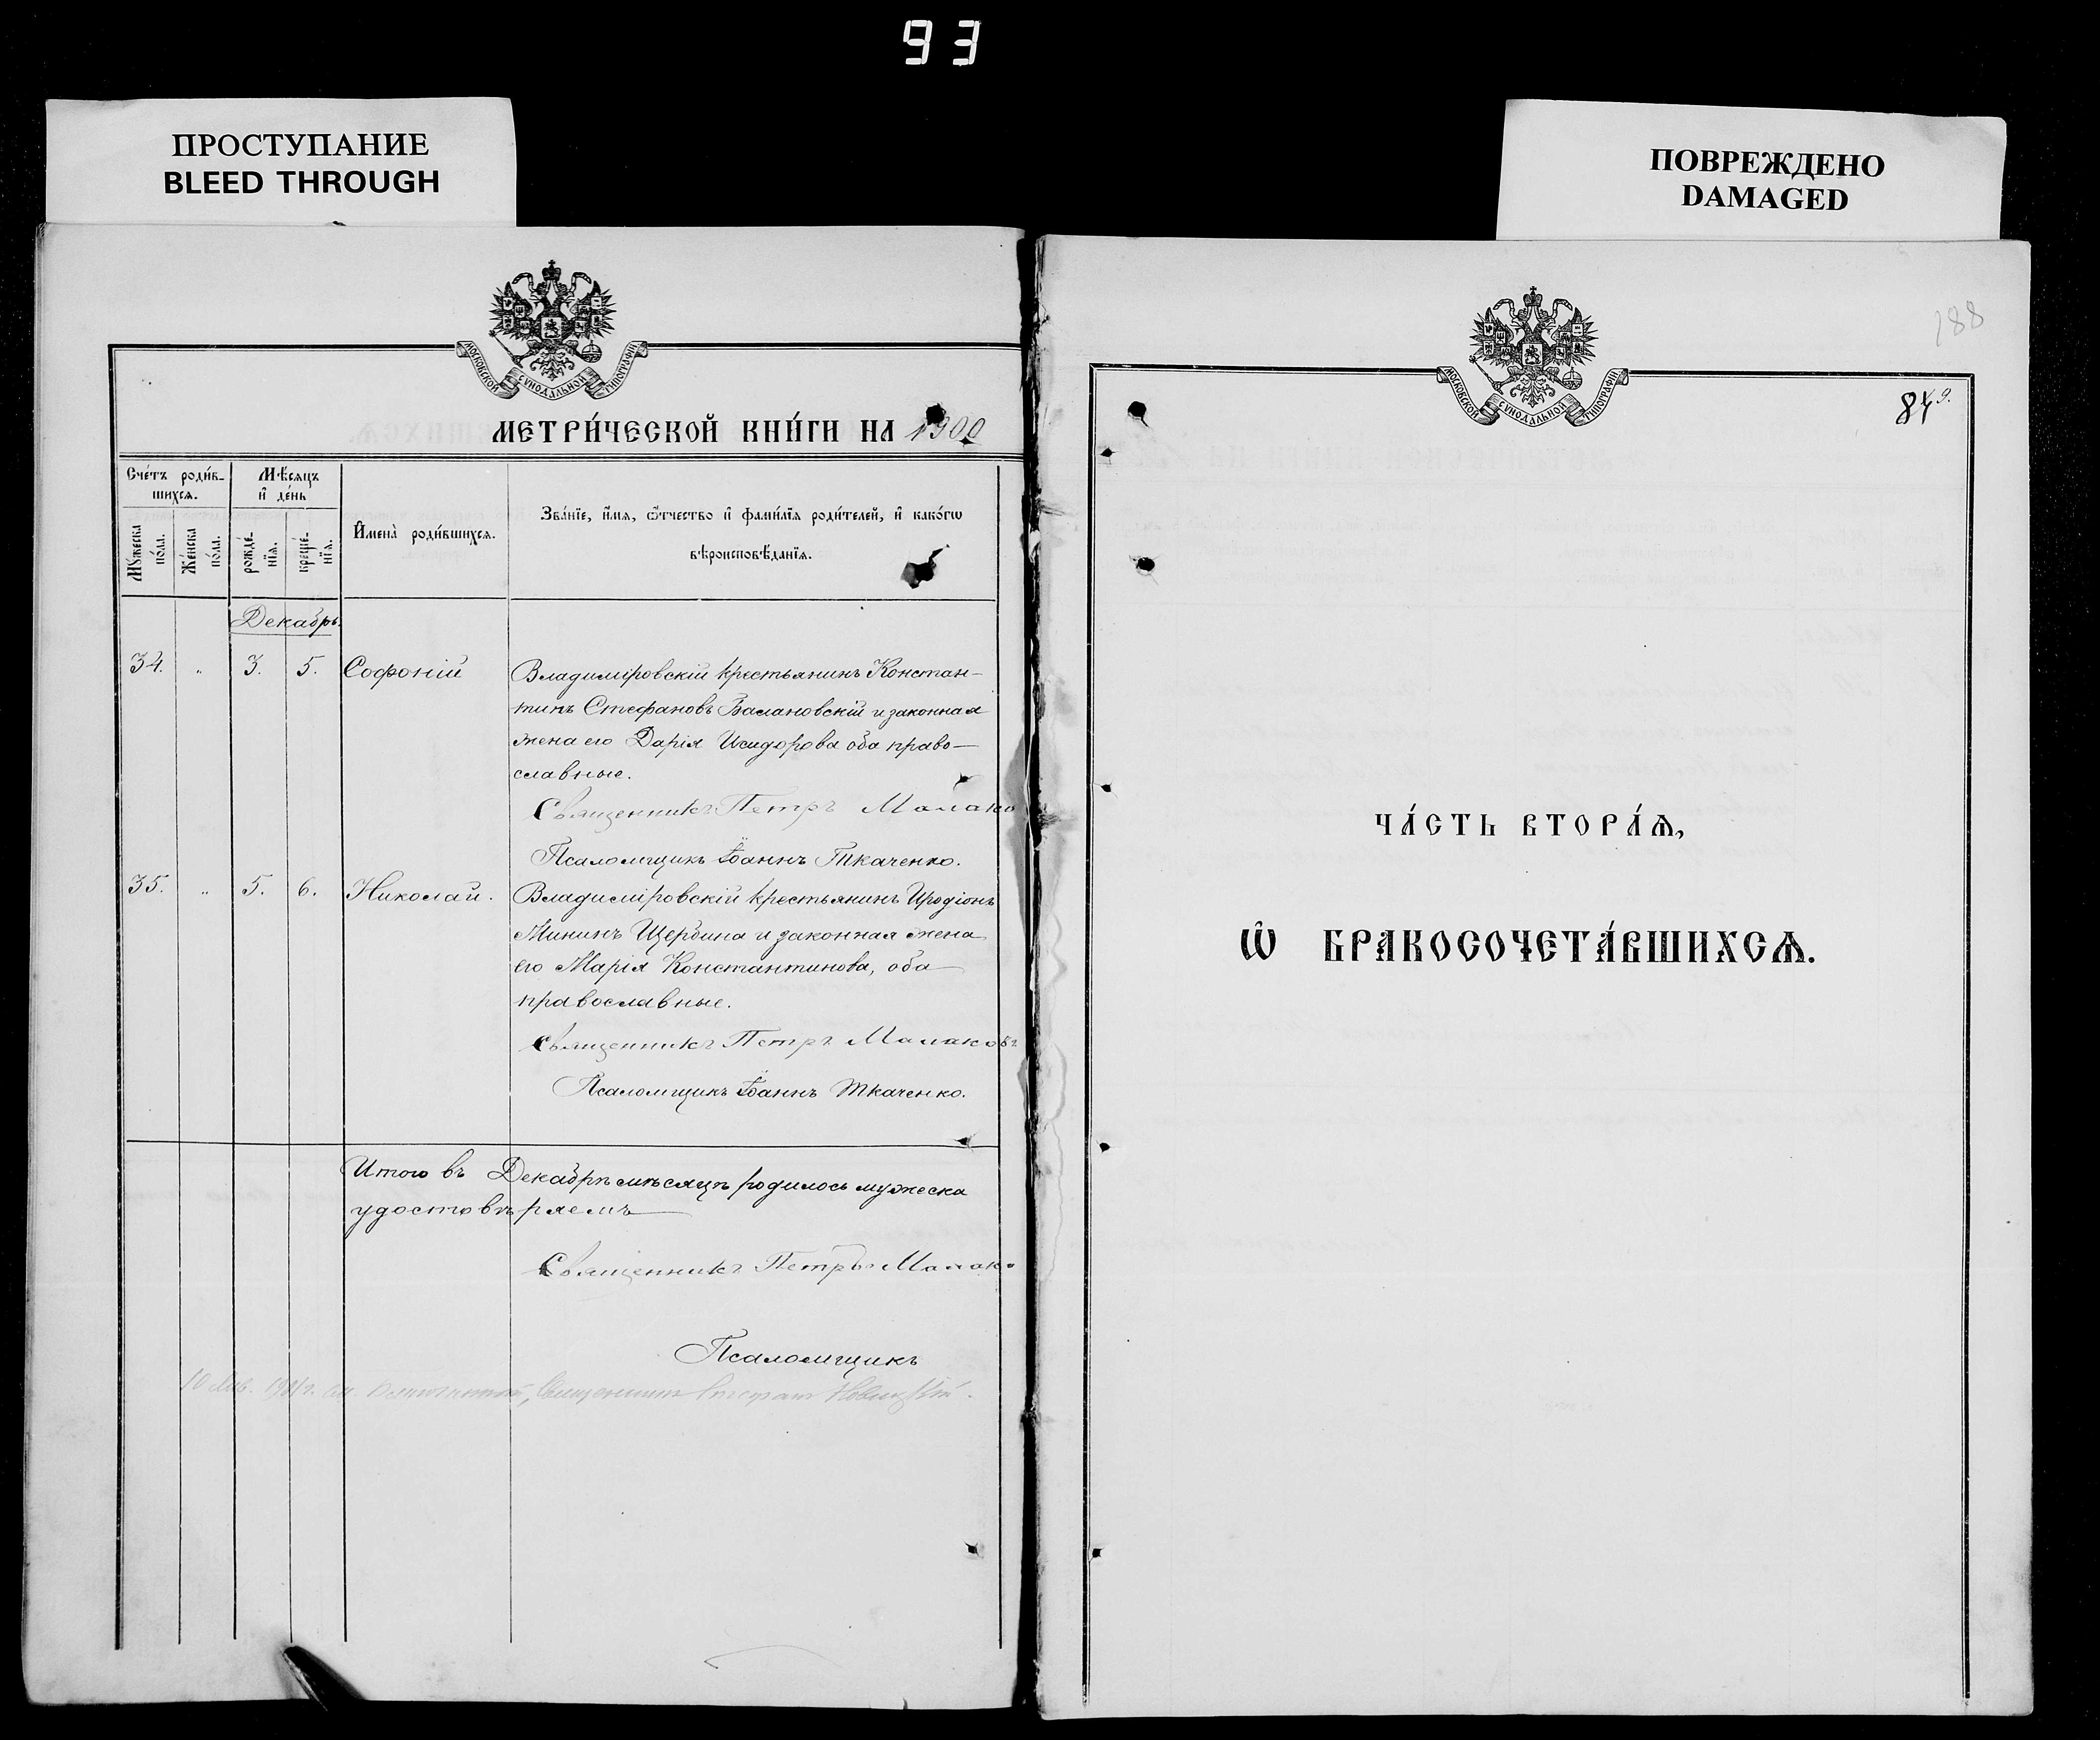 93
ПРОСТУПАНИЕ
BLEED THROUGH
ПОВРЕЖДЕНО
DAMAGED
МОСКОВСКОЙ СѴНОДАЛЬНОЙ ТИПОГРАФІИ
МЕТРИ́ЧЕСКОЙ КНИ́ГИ НА 1900
Сче́тъ роди́в-
шихсѧ.
Мѣ́сѧцъ
и҆ де́нь
Мꙋ́жеска
по́ла.
Же́нска
по́ла.
рожде́-
нїѧ.
креще́-
нїѧ.
И҆мена̀ роди́вшихсѧ.
Зва́нїе, и҆́мѧ, ѻ҆́тчество и҆ фами́лїѧ роди́телей, и҆ како́гѡ
вѣроисповѣ́данїѧ.
Декабрь.
34. „ 3. 5. Софоній Владиміровскій крестьянинъ Констан-
тинъ Стефановъ Валановскій и законная
жена его Дарія Исидорова оба право-
славные.
Священникъ Петръ Малако
Псаломщикъ Іоаннъ Ткаченко.
35. „ 5. 6. Николай. Владиміровскій крестьянинъ Иродіонъ
Мининъ Щербина и законная жена
его Марія Константинова, оба
православные.
Священникъ Петръ Малаковъ
Псаломщикъ Іоаннъ Ткаченко.
Итого въ Декабрѣ мѣсяцѣ родилось мужеска
удостовѣряемъ
Священникъ Петръ Малако
Псаломщикъ
10 Янв. 1901 г. Священникъ Стефанъ Новицкій.
188
МОСКОВСКОЙ СѴНОДАЛЬНОЙ ТИПОГРАФІИ
ЧА́СТЬ ВТОРА́Ѧ,
Ѽ БРАКОСОЧЕТА́ВШИХСѦ.